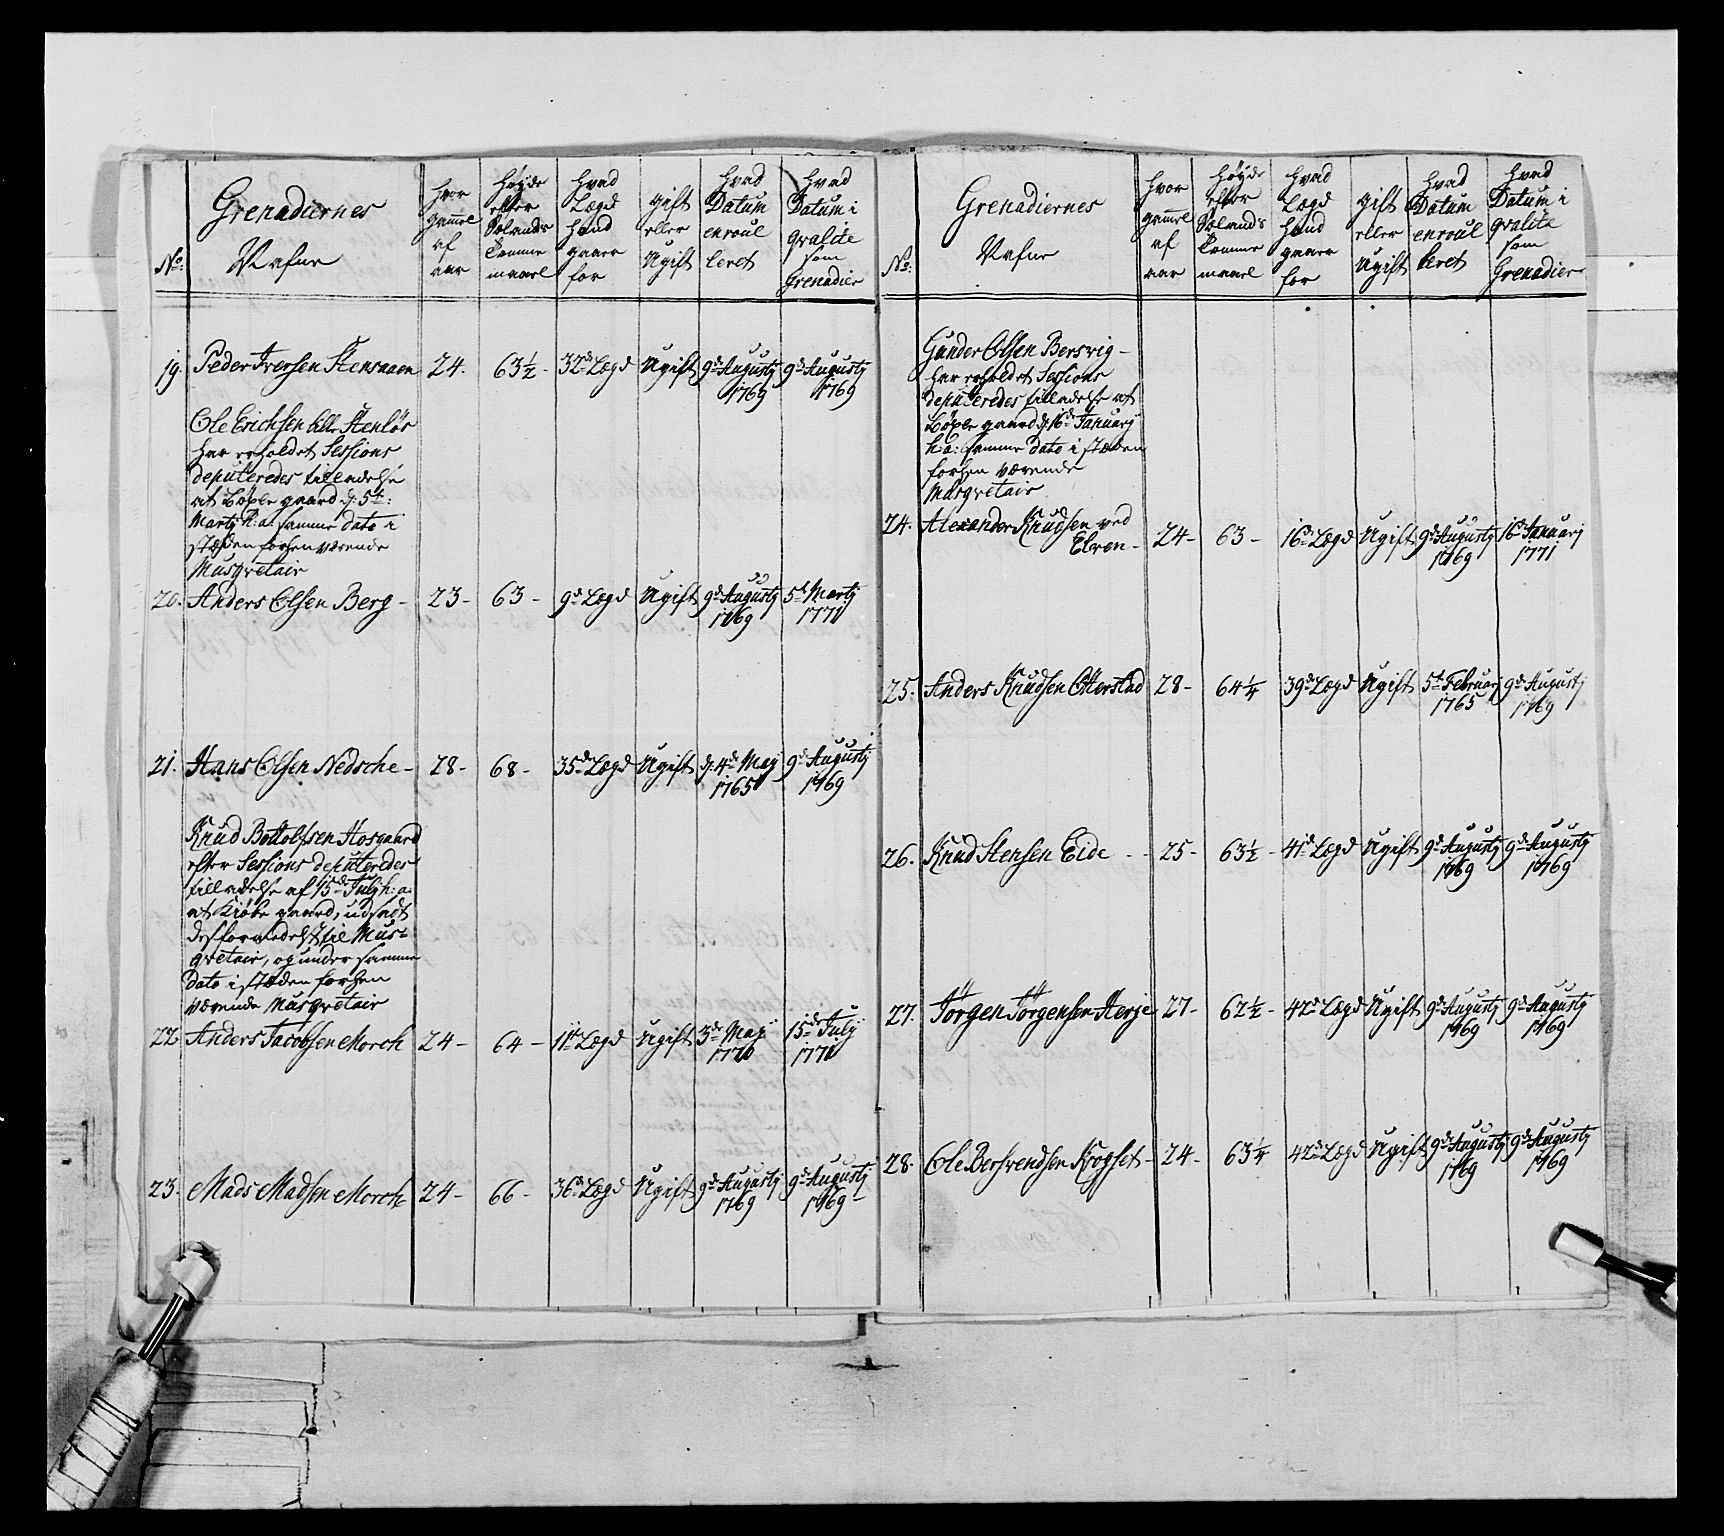 No:
Grenadiernes
Nafne
hvor
gaml
af
aar
høyde
efter
Sælands
Tomme
maael
hvad
Lægd
hand
gaaer
for
gift
eller
Ugift
hvad
Datum
enroul
leret
hvad
Datum i
qvalite
som
Grenadier
19 Peder Iversen Stensaaen 24. 63½ - 32d Lægd Ugift 9d Augustij 1769 9d Augustij 1769
Ole Erichsen lille Stenløs
har erholdet Sessions
deputeredes tilladelse
at Løxle gaard d: 5te:
Martij h: a: samme dato i
stæden forhen værende
Musqvetair
20. Anders Olsen Berg - 23 - 63 - 9d Lægd Ugift 9d Augustij 1769 5te Martij 1771
21. Hans Olsen Nedsche - 28 - 68 - 35d Lægd Ugift d: 4de Maij 1765 9d Augustij 1769
Knud Bottolfsen Hosgaard
efter Sessions deputeredes
tilladelse af 15de Julij h: a:
at kiøbe gaard, udsadt
desformedelst til Mus-
qvetair, og under samme
Dato i stæden forhen
værende Musqvetair
22 Anders Jacobsen Morch 24 - 64 - 11te Lægd Ugift 3de Maij 1770 15de Julij 1771
23. Mads Madsen Morch 24 - 66 - 36d Lægd Ugift 9d Augustij 1769 9d Augustij 1769 -
No:
Grenadiernes
Nafne
hvor
gamel
af
aar
høyde
efter
Sælands
Tomme
maael
hvad
Lægd
hand
gaaer
for
gift
eller
Ugift
hvad
Datum
enroul
leret
hvad
Datum i
qvalite
som
Grenadier
Gunder Olsen Bersvig -
har erholdet Sessions
deputeredes tilladelse at
Løxle gaard d: 16de Januarij
h: a: samme dato i stæden
forhen værende
Musqvetair
24. Alexander Knudsen ved
Elven - 24 - 63 - 16d Lægd Ugift 9d Augustij 1769 16d Januarij 1771
25. Anders Knudsen Otterstad 28 - 64¼ 39d Lægd Ugift 5te Februarij 1765 9d Augustij 1769
26. Knud Stensen Eide - - 25 - 63½ - 41d Lægd Ugift 9d Augustij 1769 9d Augustij 1769
27. Jørgen Jørgensen Herje 27 - 62½ - 42d Lægd Ugift 9d Augustij 1769 9d Augustij 1769
28. Ole Berhrendsen Krogset - 24 - 63¼ 42d Lægd Ugift 9d Augustij 1769 9d Augustij 1769